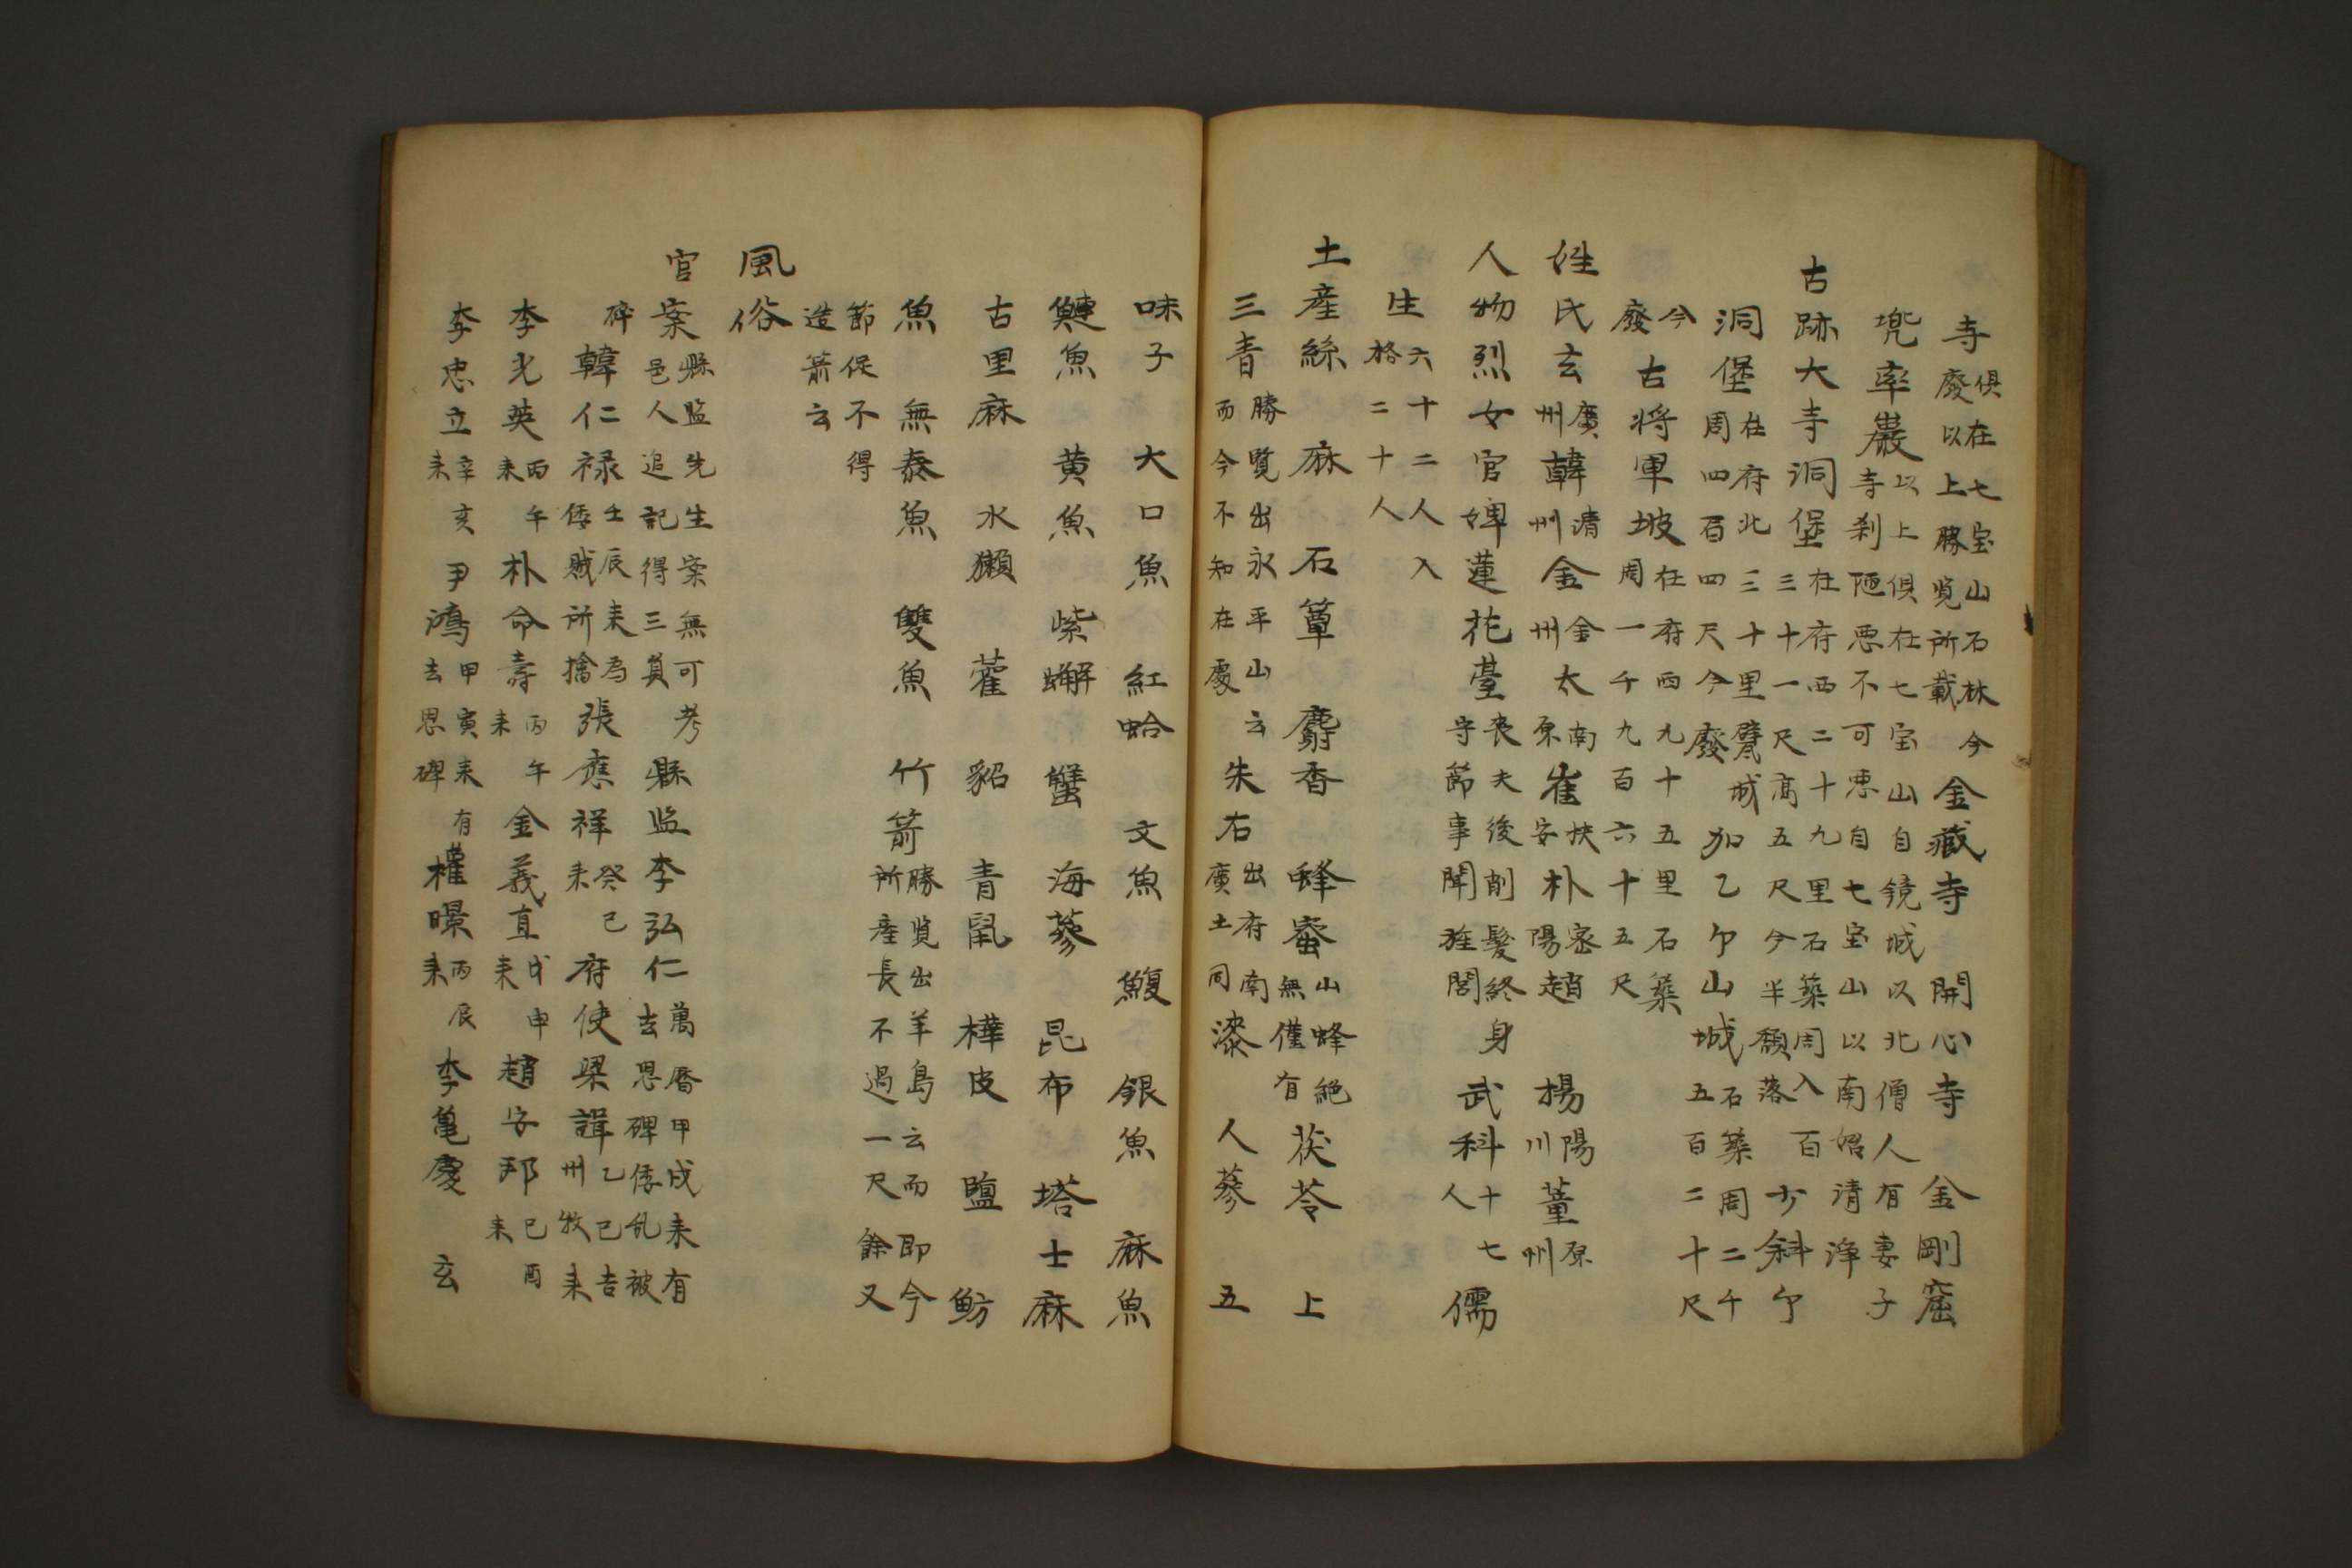 寺俱在七宝山石林今廢以上勝覧所載金藏寺 開心寺 金剛窟
兜率巖以上俱在七宝山自鏡城以北僧人有妻子寺刹陋悪不可悪自七宝山以南始清淨
古跡大寺洞堡在府西二十九里石築周入百三十一尺高五尺今半頹落 少斜亇
洞堡在府北三十里甓城周四百四尺今廢 加乙亇山城石築周二千五百二十尺
今廢 古将軍坡在府西九十五里石築周一千九百六十五尺
姓氏玄廣州韓清州金金州太南原崔扶安朴密陽趙 揚陽川董原州
人物烈女官婢蓮花䑓丧夫後削髮終身守節事聞旌閭 武科十七人 儒
生六十二人入格二十人
土産絲 麻 石簟 麝香 蜂蜜山蜂絶無僅有 茯苓 上
三青勝覽出永平山云而今不知在處 朱石出府南廣土同 漆 人蔘 五
味子 大口魚 紅蛤 文魚 鰒 銀魚 麻魚
鰱魚 黄魚 紫蠏 蟹 海蔘 昆布 塔士麻
古里麻 水獺 藿 貂 青鼠 樺皮 鹽 魴
魚 無泰魚 雙魚 竹箭勝覧出羊島云而即今所産長不過一尺餘又
節促不得造箭云
風俗
官案縣监先生案無可考邑人追記得三員 縣监李弘仁萬曆甲戌来有去思碑倭乱被
碎韓仁禄壬辰来為倭賊所擒張應祥癸已来 府使梁諿乙巳吉州牧来
李光英丙午来朴命壽丙午来金義直戊申来趙安邦巳酉来
李忠立辛亥来尹鴻甲寅来有去思碑 權暻丙辰来李亀慶 玄